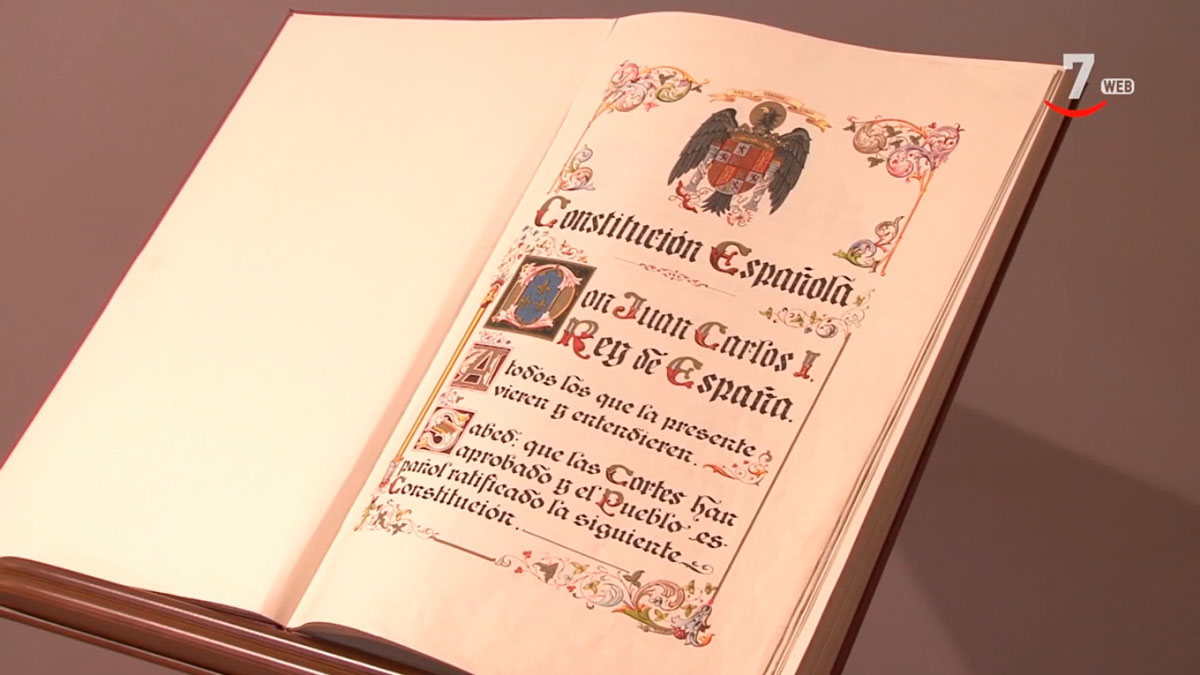 7 WEB
Constitución Española
Don Juan Carlos I.
Rey de España.
A todos los que la presente
vieren y entendieren.
Sabed: que las Cortes han
aprobado y el Pueblo es-
pañol ratificado la siguiente
Constitución.